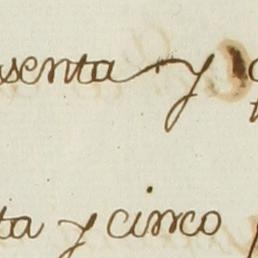 senta y
ta y cinco